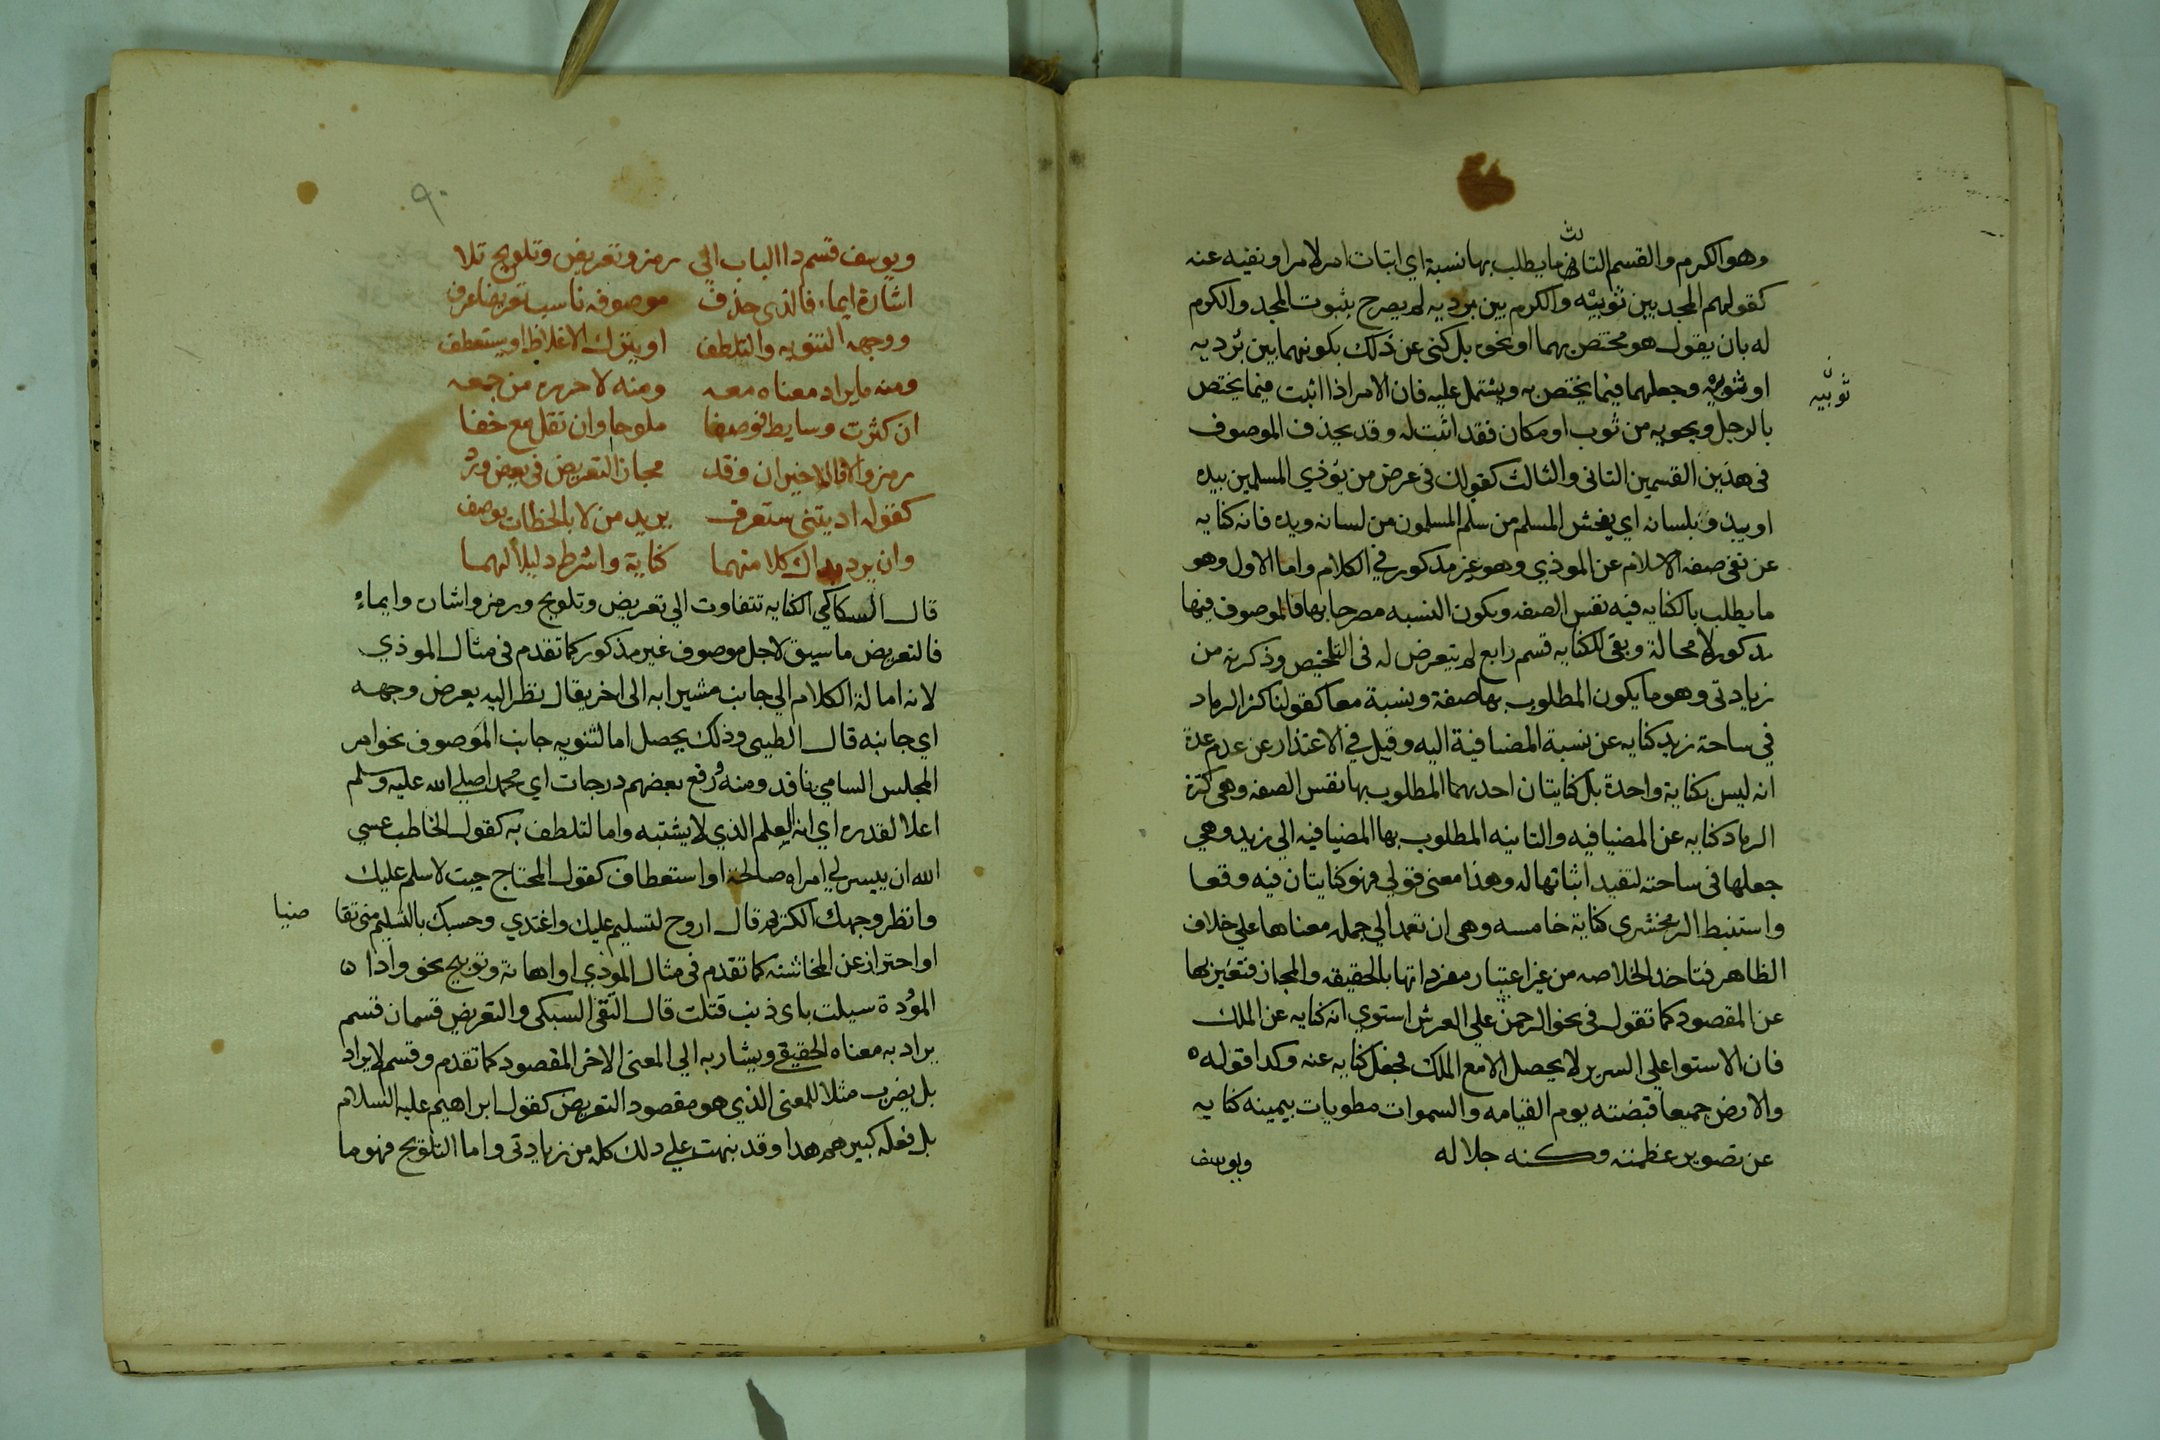 وهو الكرم والقسم الثالث ما يطلب بها نسبة اي اثبات امر لامر او نفيه عنه
كقولهم المجد بين ثوبيه والكرم بين برديه لم يصرح بثبوت المجد والكرم
له بان يقول هو مختص بهما او نحوه بل كنى عن ذلك بكونهما بين برديه
او ثوبيه وجعلهما فيما يختص به ويشتمل عليه فان الامر اذا اثبت فيما يختص
ثوبيه
بالرجل ويحويه من ثوب او مكان فقد اثبت له وقد يحذف الموصوف
في هذين القسمين الثاني والثالث كقولك في عرض من يؤذي المسلمين بيده
او بيد وبلسانه اي يفحش المسلم من سلم المسلمون من لسانه ويده فانه كنايه
عن نفي صفه الاسلام عن الموذي وهو غير مذكور في الكلام واما الاول وهو
ما يطلب بالكنايه فيه نفس الصفه ويكون النسبه مصرحا بها فالموصوف فيها
مذكور لا محالة وبقي للكنايه قسم رابع لم يتعرض له في التلخيص وذكرته من
زيادتي وهو ما يكون المطلوب بها صفة ونسبة معا كقولنا كثر الرماد
في ساحة زيد كنايه عن نسبة المضافية اليه وقيل في الاعتذار عن عدم عده
انه ليس بكناية واحدة بل كنايتان احدهما المطلوب بها نفس الصفه وهي كثرة
الرماد كنايه عن المضيافيه والثانيه المطلوب بها المضيافيه الي زيد وهي
جعلها في ساحته لتفيد اثباتها له وهذا معنى قولي فهو كنايتان فيه وقعا
واستنبط الزمخشري كناية خامسه وهي ان تعمد الي جمله معناها علي خلاف
الظاهر فتاخذ الخلاصه من غير اعتبار مفرداتها بالحقيقه والمجاز فتعبر بها
عن المقصود كما تقول في نحو الرحمن علي العرش استوي انه كنايه عن الملك
فان الاستوا علي السرير لا يحصل الا مع الملك فجعل كنايه عنه وكذا قوله
والارض جميعا قبضته يوم القيامه والسموات مطويات بيمينه كنايه
عن تصوير عظمته وكنه جلاله
ويوسف
٩٠
ويوسف قسم ذا الباب الي رمز وتعريض وتلويح تلا
اشارة ايماء فالذي حذف موصوفه ناسب تعريضا عرف
ووجهه التنويه والتلطف او يترك الاغلاظ او يستعطف
ومنه ما يراد معناه معه ومنه لا حرره من جمعه
ان كثرت وسايط فوصفا ملوحا وان تقل مع خفا
رمز والا فالاخيران وقد مجاز التعريض في بعض ورد
كقوله اذيتني ستعرف يريد من لا بالخطاب يوصف
وان يرد ذاك كلا منهما كناية واشرط دليلا لهما
قال السكاكي الكنايه تتفاوت الي تعريض وتلويح ورمز واشاره وايماء
فالتعريض ما سيق لاجل موصوف غير مذكور كما تقدم في مثال الموذي
لانه امالة الكلام الي جانب مشيرا به الي اخر يقال نظر اليه بعرض وجهه
اي جانبه قال الطيبي وذلك يحصل اما لتنويه جانب الموصوف نحو امر
المجلس السامي نافذ ومنه ورفع بعضهم درجات اي محمدا صلي الله عليه وسلم
اعلا لقدره اي انه العلم الذي لا يشتبه واما لتلطف به كقول الخاطب عسي
الله ان ييسر لي امراه صالحة او استعطاف كقول المحتاج جيت لاسلم عليك
وانظر وجهك الكريم قال اروح لتسليم عليك واغتدي وحسبك بالتسليم مني تقا ضيا
او احتراز عن المخاشنه كما تقدم في مثال الموذي او اهانة وتوبيخ نحو واذا
الموءدة سيلت باي ذنب قتلت قال التقي السبكي والتعريض قسمان قسم
يراد به معناه الحقيقي ويشار به الي المعني الاخر المقصود كما تقدم وقسم لا يراد
بل يضرب مثلا للمعني الذي هو مقصود التعريض كقول ابراهيم عليه السلام
بل فعله كبيرهم هذا وقد نبهت علي ذلك كله من زيادتي واما التلويح فهو ما